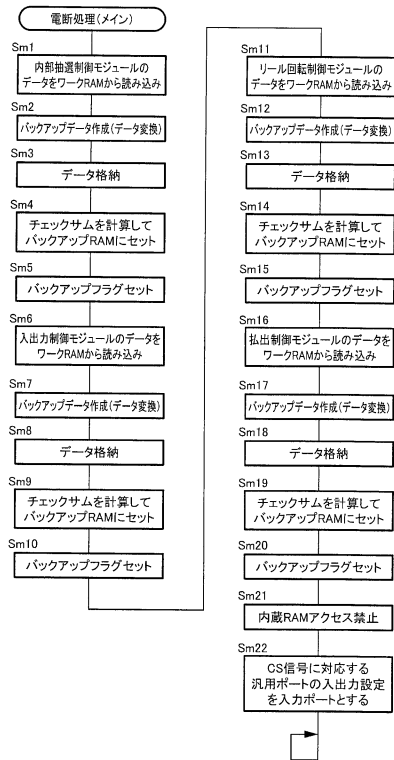 電断処理(メイン)
Sm1
内部抽選制御モジュールの
データをワークRAMから読み込み
Sm2
バックアップデータ作成(データ変換)
Sm3
データ格納
Sm4
チェックサムを計算して
バックアップRAMにセット
Sm5
バックアップフラグセット
Sm6
入出力制御モジュールのデータを
ワークRAMから読み込み
Sm7
バックアップデータ作成(データ変換)
Sm8
データ格納
Sm9
チェックサムを計算して
バックアップRAMにセット
Sm10
バックアップフラグセット
Sm11
リール回転制御モジュールの
データをワークRAMから読み込み
Sm12
バックアップデータ作成(データ変換)
Sm13
データ格納
Sm14
チェックサムを計算して
バックアップRAMにセット
Sm15
バックアップフラグセット
Sm16
払出制御モジュールのデータを
ワークRAMから読み込み
Sm17
バックアップデータ作成(データ変換)
Sm18
データ格納
Sm19
チェックサムを計算して
バックアップRAMにセット
Sm20
バックアップフラグセット
Sm21
内蔵RAMアクセス禁止
Sm22
CS信号に対応する
汎用ポートの入出力設定
を入力ポートとする